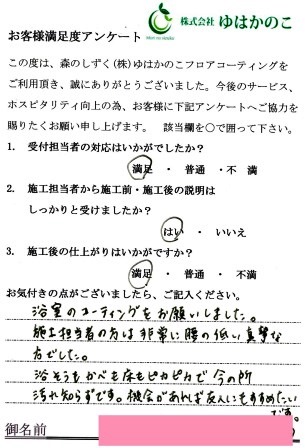 株式会社 ゆはかのこ
お客様満足度アンケート
この度は、森のしずく(株)ゆはかのこフロアコーティングを
ご利用頂き、誠にありがとうございました。今後のサービス、
ホスピタリティ向上の為、お客様に下記アンケートへご協力を
賜りたくお願い申し上げます。 該当欄を○で囲って下さい。
1. 受付担当者の対応はいかがでしたか?
満足 ・ 普通 ・ 不 満
2. 施工担当者から施工前・施工後の説明は
しっかりと受けましたか?
はい ・ いいえ
3. 施工後の仕上がりはいかがですか?
満足 ・ 普通 ・ 不満
お気付きの点がございましたら、ご記入ください。
浴室のコーティングをお願いしました。
施工担当者の方は非常に腰の低い真摯な
方でした。
浴そうもかべも床もピカピカで今の所
汚れ知らずです。機会があれば友人にもすすめたい
です。
御名前